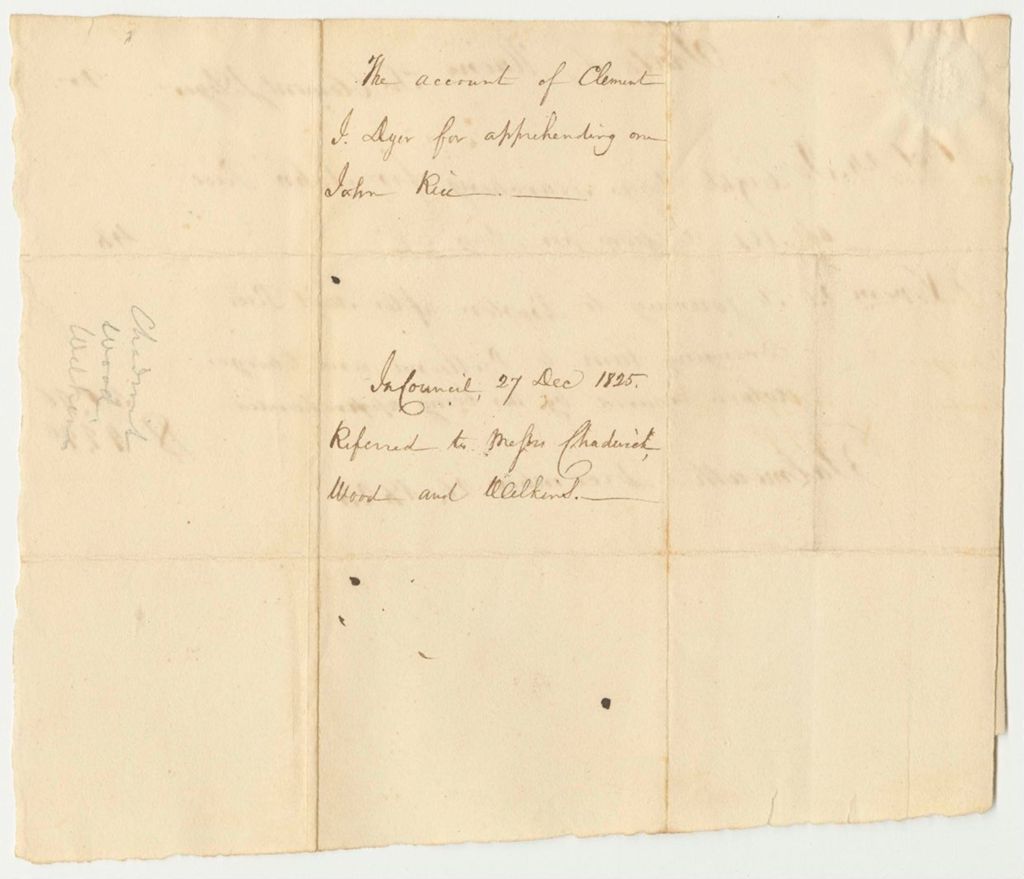 The account of Clement
J. Dyer for apprehending one
John Rice.
In Council, 27 Dec 1825.
Referred to Messrs Chadwick,
Wood and Wilkins.
Chadwick
Wood
Wilkins